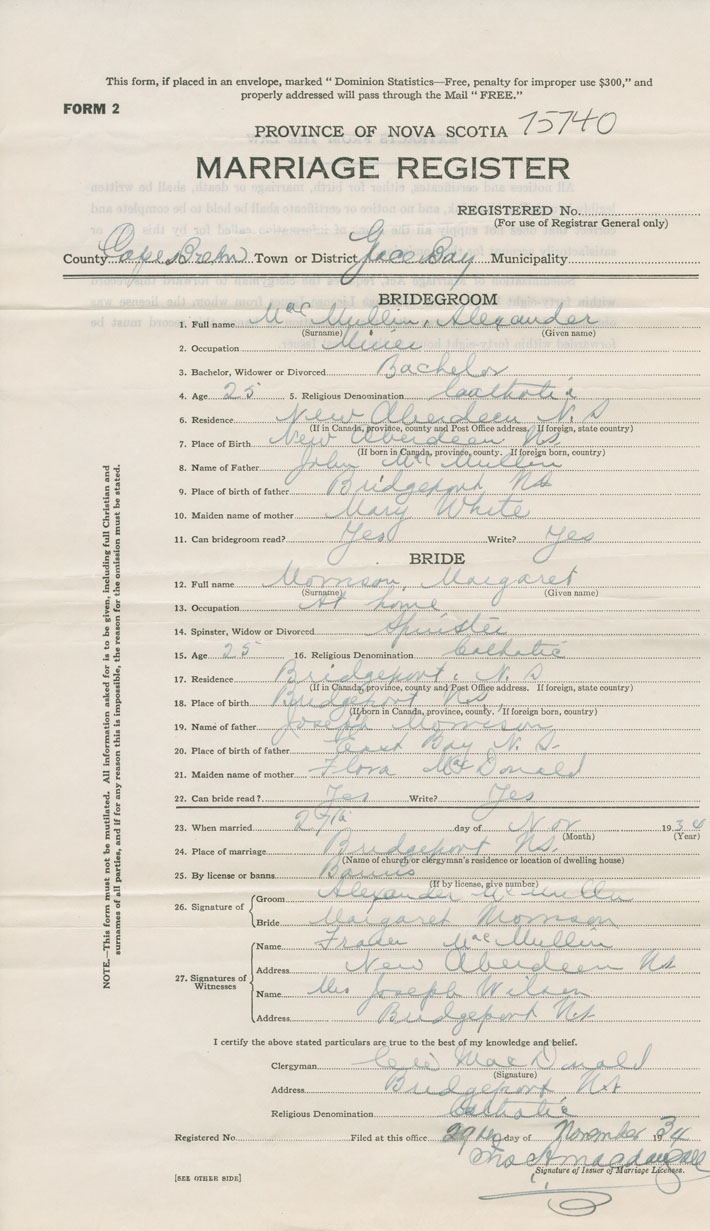 This form, if placed in an envelope, marked “ Dominion Statistics—Free, penalty for improper use $300,” and
properly addressed will pass through the Mail “ FREE.”
FORM 2
PROVINCE OF NOVA SCOTIA 15740
MARRIAGE REGISTER
REGISTERED No.
(For use of Registrar General only)
County Cape Breton Town or District Glace Bay Municipality
BRIDEGROOM
1. Full name MacMullin, Alexander
(Surname) (Given name)
2. Occupation Miner
3. Bachelor, Widower or Divorced Bachelor
4. Age 25 5. Religious Denomination Catholic
6. Residence New Aberdeen N.S
(If in Canada, province, county and Post Office address. If foreign, state country)
7. Place of Birth New Aberdeen Ns
(If born in Canada, province, county. If foreign born, country)
8. Name of Father John McMullin
9. Place of birth of father Bridgeport Ns
10. Maiden name of mother Mary White
11. Can bridegroom read? Yes Write? Yes
BRIDE
12. Full name Morrison, Margaret
(Surname) (Given name)
13. Occupation At home
14. Spinster, Widow or Divorced Spinster
15. Age 25 16. Religious Denomination Catholic
17. Residence Bridgeport, N.S
(If in Canada, province, county and Post Office address. If foreign, state country)
18. Place of birth Bridgeport Ns
(If born in Canada, province, county. If foreign born, country)
19. Name of father Joseph Morrison
20. Place of birth of father East Bay N.S.
21. Maiden name of mother Flora MacDonald
22. Can bride read?. Yes Write? Yes
23. When married 27th day of Nov 1934
(Month) (Year)
24. Place of marriage Bridgeport Ns.
(Name of church or clergyman's residence or location of dwelling house)
25. By license or banns Banns
(If by license, give number)
26. Signature of
Groom Alexander McMullin
Bride Margaret Morrison
27. Signatures of Witnesses
Name Fraser MacMullin
Address New Aberdeen Ns
Name Mrs Joseph Wilson
Address Bridgeport Ns
I certify the above stated particulars are true to the best of my knowledge and belief.
Clergyman MacDonald
(Signature)
Address Bridgeport Ns
Religious Denomination Catholic
Registered No. Filed at this office 29th day of November 1934
Signature of Issuer of Marriage Licenses.
[SEE OTHER SIDE]
NOTE.—This form must not be mutilated. All information asked for is to be given, including full Christian and
surnames of all parties, and if for any reason this is impossible, the reason for the omission must be stated.